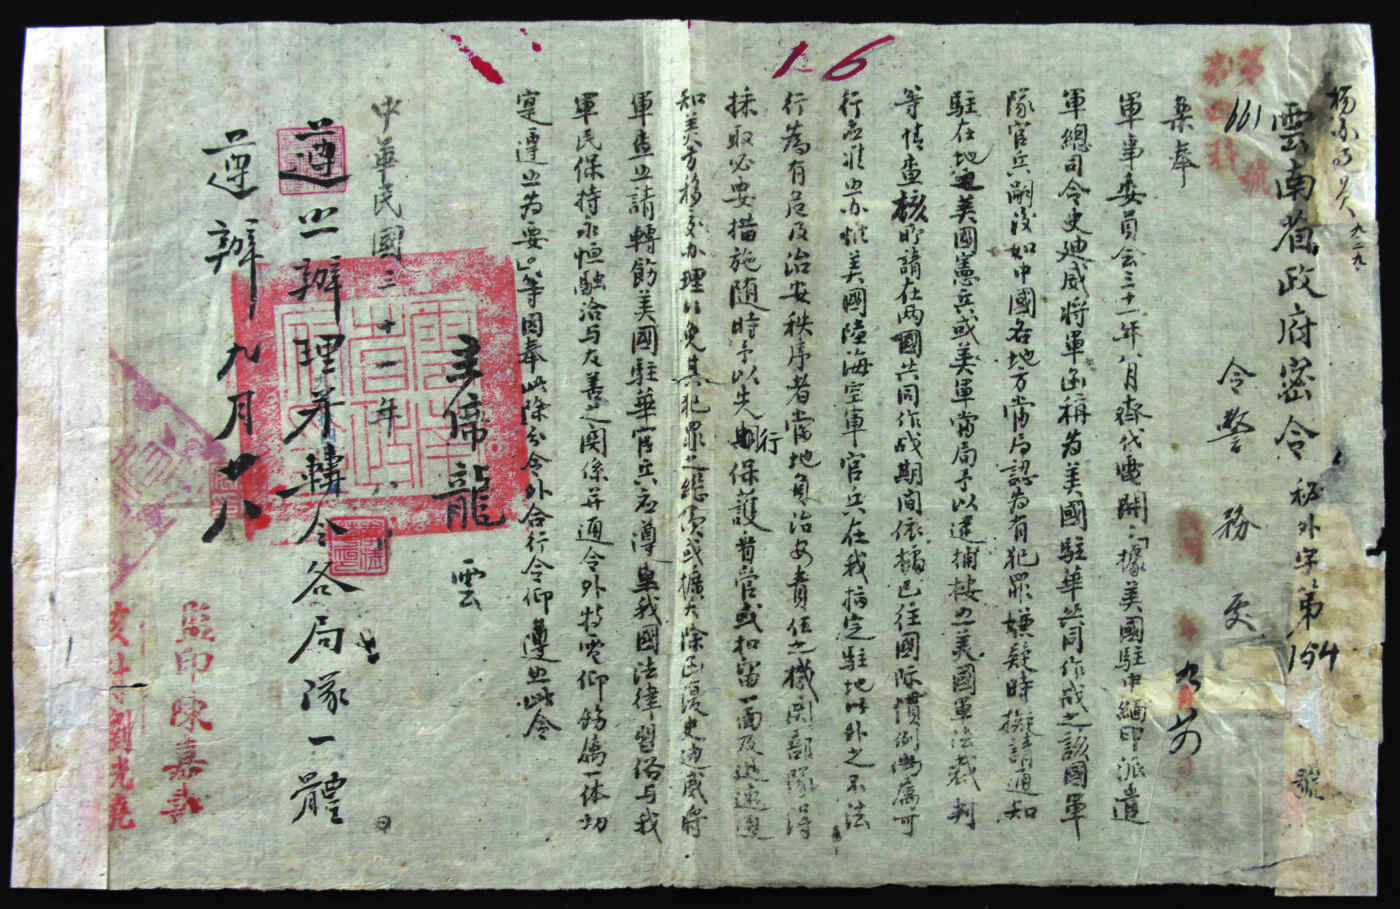 16
雲南省政府密令 秘外字第154號
令警務處
661
案奉
軍事委員會三十一年八月齊代電開：「據美國駐中緬印派遣
軍總司令史迪威將軍函稱為美國駐華共同作戰之該國軍
隊官兵嗣後如中國各地方當局認為有犯罪嫌疑時擬請通知
駐在地美國憲兵或美軍當局予以逮捕按照美國軍法裁判
等情查核所請在兩國共同作戰期間依據已往國際慣例尚屬可
行應准照办惟美國陸海空軍官兵在我指定駐地以外之不法
行為有危及治安秩序者當地負治安責任之機関部隊得
採取必要措施随時予以先行保護看管或扣留一面及迅速通
知美方移交办理以免其犯罪之継續或擴大除函復史迪威將
軍查照請轉飭美國駐華官兵應遵重我國法律習俗与我
軍民保持永恒融洽与友善之関係并通令外特電仰飭属一体切
實遵照為要」等因奉此除分令外合行令仰遵照此令
主席龍雲
中華民國三十一年八月 日
遵照辦理并轉令各局隊一體
遵辦 九月廿八
監印陳嘉
劉光堯